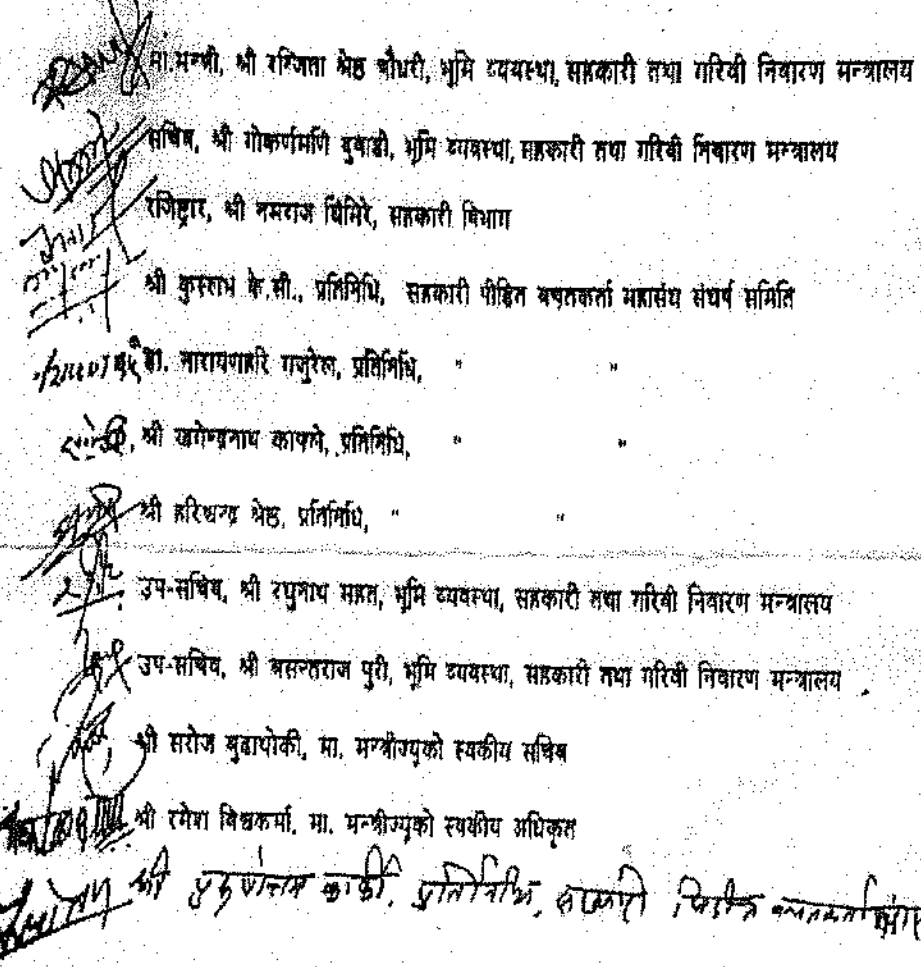 मा.मन्त्री, श्री रञ्जिता श्रेष्ठ चौधरी, भूमि व्यवस्था, सहकारी तथा गरिवी निवारण मन्त्रालय
सचिव, श्री गोकर्णमणि दुवाडी, भूमि व्यवस्था, सहकारी तथा गरिवी निवारण मन्त्रालय
रजिष्ट्रार, श्री नमराज घिमिरे, सहकारी विभाग
श्री कुस्लाभ के.सी., प्रतिनिधि, सहकारी पीडित बचतकर्ता महासंघ संघर्ष समिति
डा. नारायणहरि गजुरेल, प्रतिनिधि, " "
श्री खगेन्द्रनाथ काफ्ले, प्रतिनिधि, " "
श्री हरिश्चन्द्र श्रेष्ठ, प्रतिनिधि, " "
उप-सचिव, श्री रघुनाथ महत, भूमि व्यवस्था, सहकारी तथा गरिवी निवारण मन्त्रालय
उप-सचिव, श्री बसन्तराज पुरी, भूमि व्यवस्था, सहकारी तथा गरिवी निवारण मन्त्रालय
श्री सरोज बुढाथोकी, मा. मन्त्रीज्यूको स्वकीय सचिव
श्री रमेश विश्वकर्मा, मा. मन्त्रीज्यूको स्वकीय अधिकृत
श्री पुरुषोत्तम कार्की, प्रतिनिधि, सहकारी पिडीत बचतकर्ता